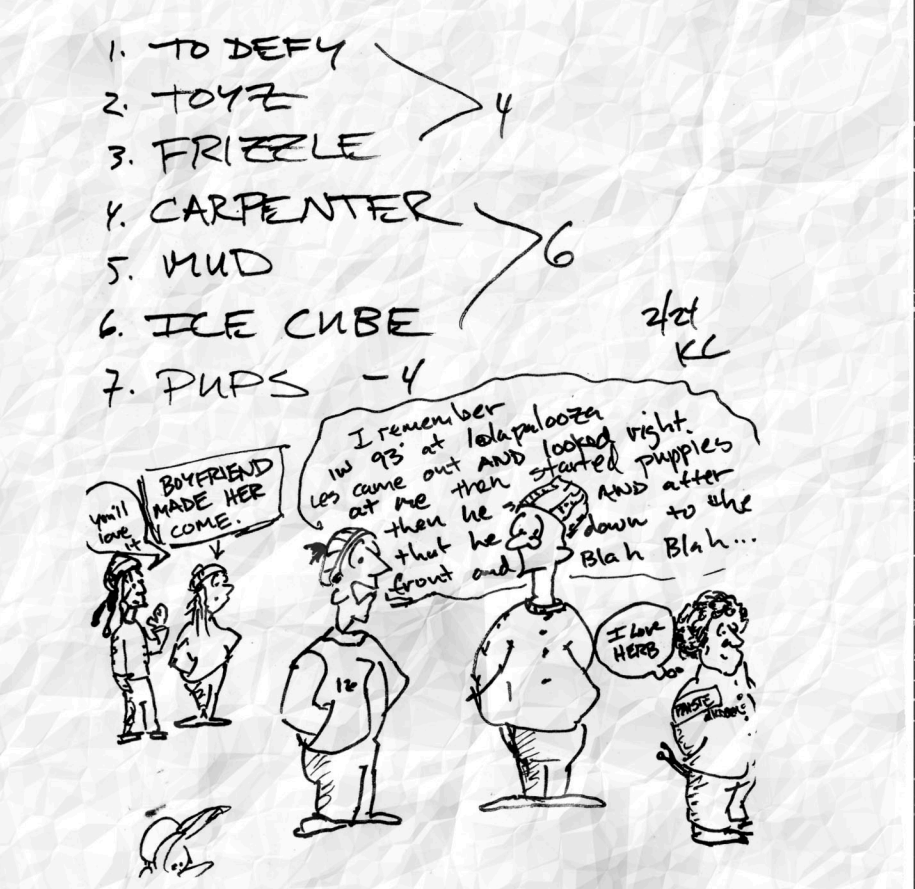 1. TO DEFY
2. TOYZ
3. FRIZZLE
4
4. CARPENTER
5. MUD
6. ICE CUBE
6
7. PUPS -4
2/21
KC
I remember
IN 93' at lolapalooza
Les came out AND looked right.
at me then started puppies
then he AND after
that he down to the
front and Blah Blah...
BOYFRIEND
MADE HER
COME.
you'll
love
it
12
I Love
HERB
PAISTE